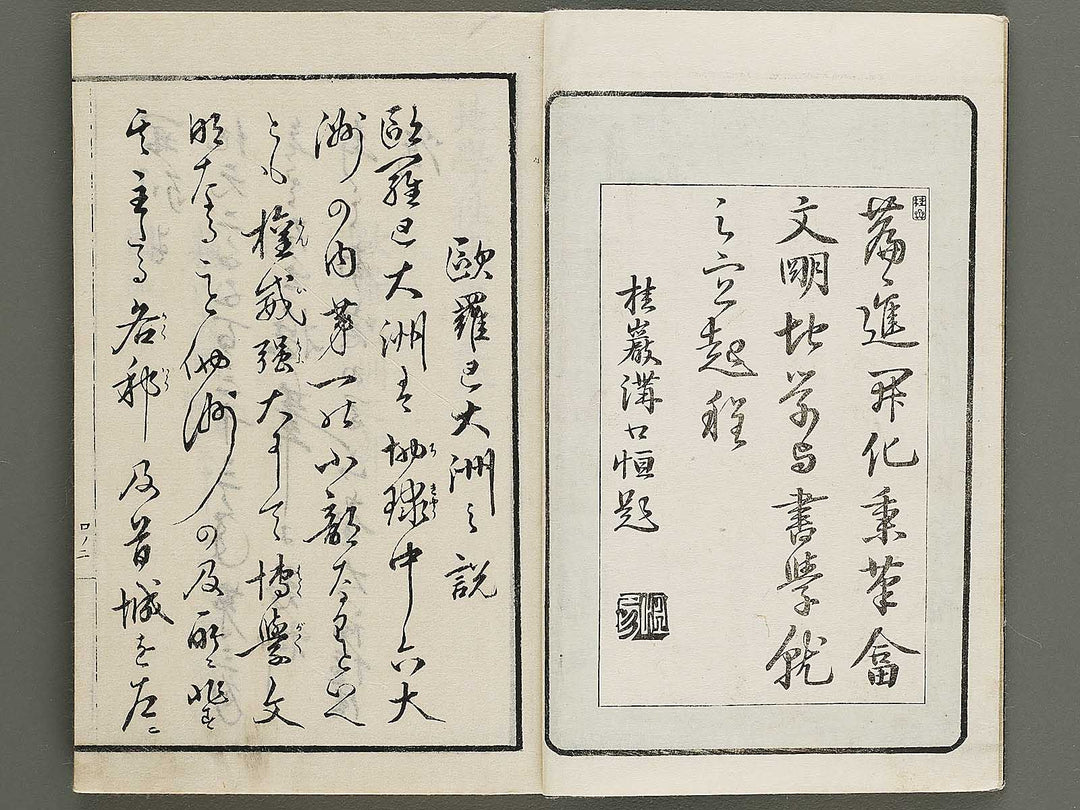 進開化秉筆
文明地学与書學就
之 起程
桂巖溝口恒題
歐羅巴大洲之説
歐羅巴大洲は地球中六大
洲の内第一の小部なりと雖
とも權威强大にして博學文
明なること他洲の及所に非す
其主なる各邦及首城を左ニ